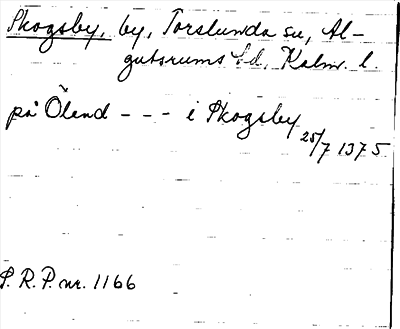 Skogsby, by, Torslunda sn, Al-
gutsrums hd, Kalm. l.
på Öland - - - i Skogsby
25/7 1375
S. R. P. nr. 1166